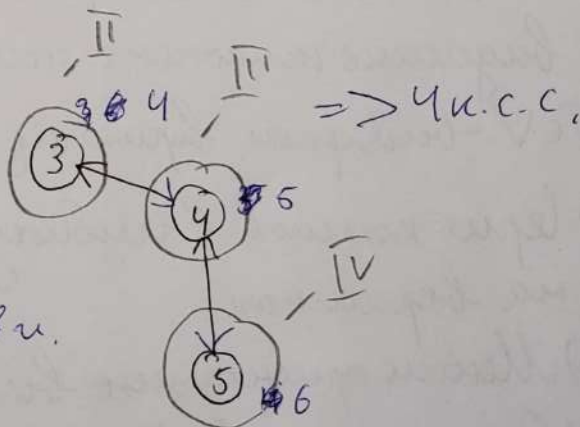 II
III
4
=> 4 к.с.с.
3
4
5
IV
и.
5
6